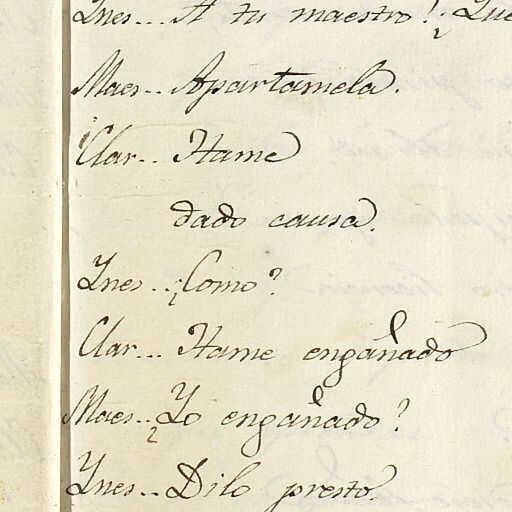 Ynes... A tu maestro! ¿Que
Maes.. Apartamela.
Clar.. Hame
dado causa.
Ynes.. ¿Como?
Clar... Hame engañado
Maes.. ¿Yo engañado?
Ynes.. Dilo presto.